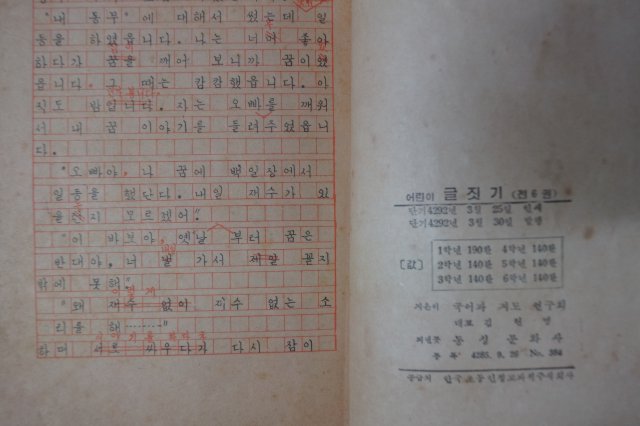 "내 동무"에 대해서 썼는데 일
등을 하였읍니다. 나는 너머 좋아
하다가 꿈을 깨어 보니까 꿈이었
읍니다. 그 때는 캄캄했읍니다. 아
직도 밤입니다. 자는 오빠를 깨워
서 내 꿈 이야기를 들려주었읍니
다.
"오빠야, 나 꿈에 백일장에서
일등을 했단다. 내일 재수가 있
을런지 모르겠어!"
"이 바보야, 옛날 부터 꿈은
반대야. 너 가서 제일 꼴지
밖에 못했"
"왜 재수 없이 재수 없는 소
리를 해 ………"
하며 서로 싸우다가 다시 잠이
어린이 글짓기 (전6권)
단기4292년 3월 25일 인쇄
단기4292년 3월 30일 발행
[값]
1학년 190환 4학년 140환
2학년 140환 5학년 140환
3학년 140환 6학년 140환
지은이 국어과 지도 연구회
대표 김
펴낸곳 동성문화사
등록 4285. 9. 26 No. 394
공급처